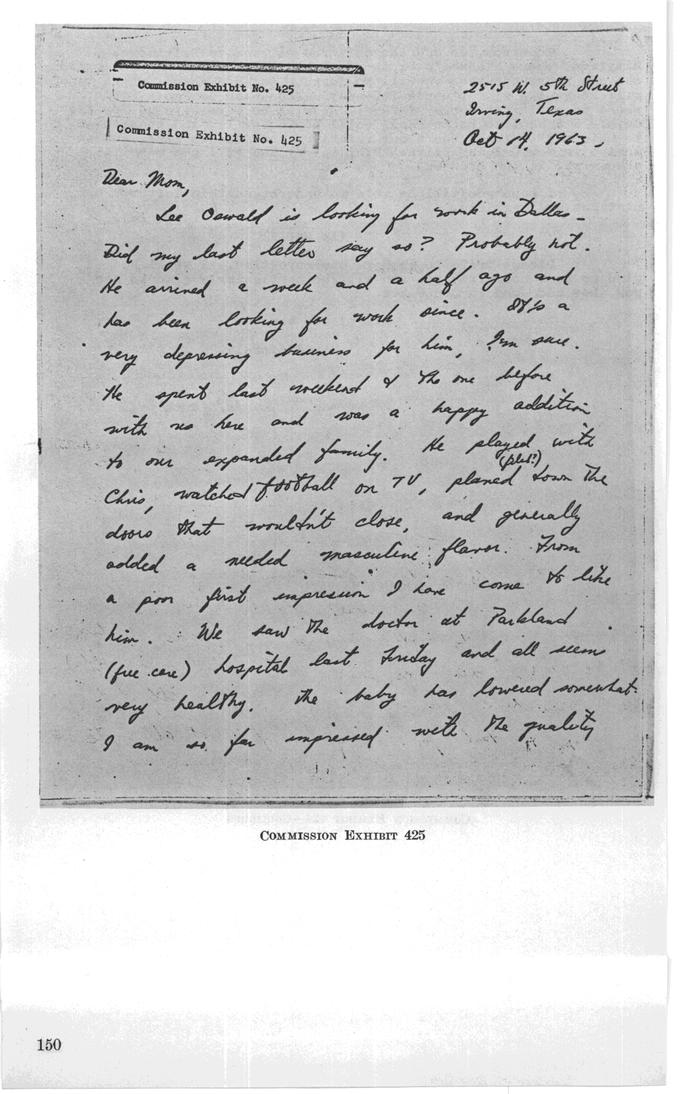 Commission Exhibit No. 425
Commission Exhibit No. 425
2515 W. 5th Street
Irving, Texas
Oct 14, 1963.
Dear Mom,
Lee Oswald is looking for work in Dallas.
Did my last letter say so? Probably not.
He arrived a week and a half ago and
has been looking for work since. It's a
very depressing business for him, I'm sure.
He spent last weekend & the one before
with us here and was a happy addition
to our expanded family. He played with
Chris, watched football on TV, planed down the
(plat?)
doors that wouldn't close, and generally
added a needed masculine flavor. From
a poor first impression I have come to like
him. We saw the doctor at Parkland
(free care) hospital last Friday and all seems
very healthy. The baby has lowered somewhat.
I am so far impressed with the quality
COMMISSION EXHIBIT 425
150